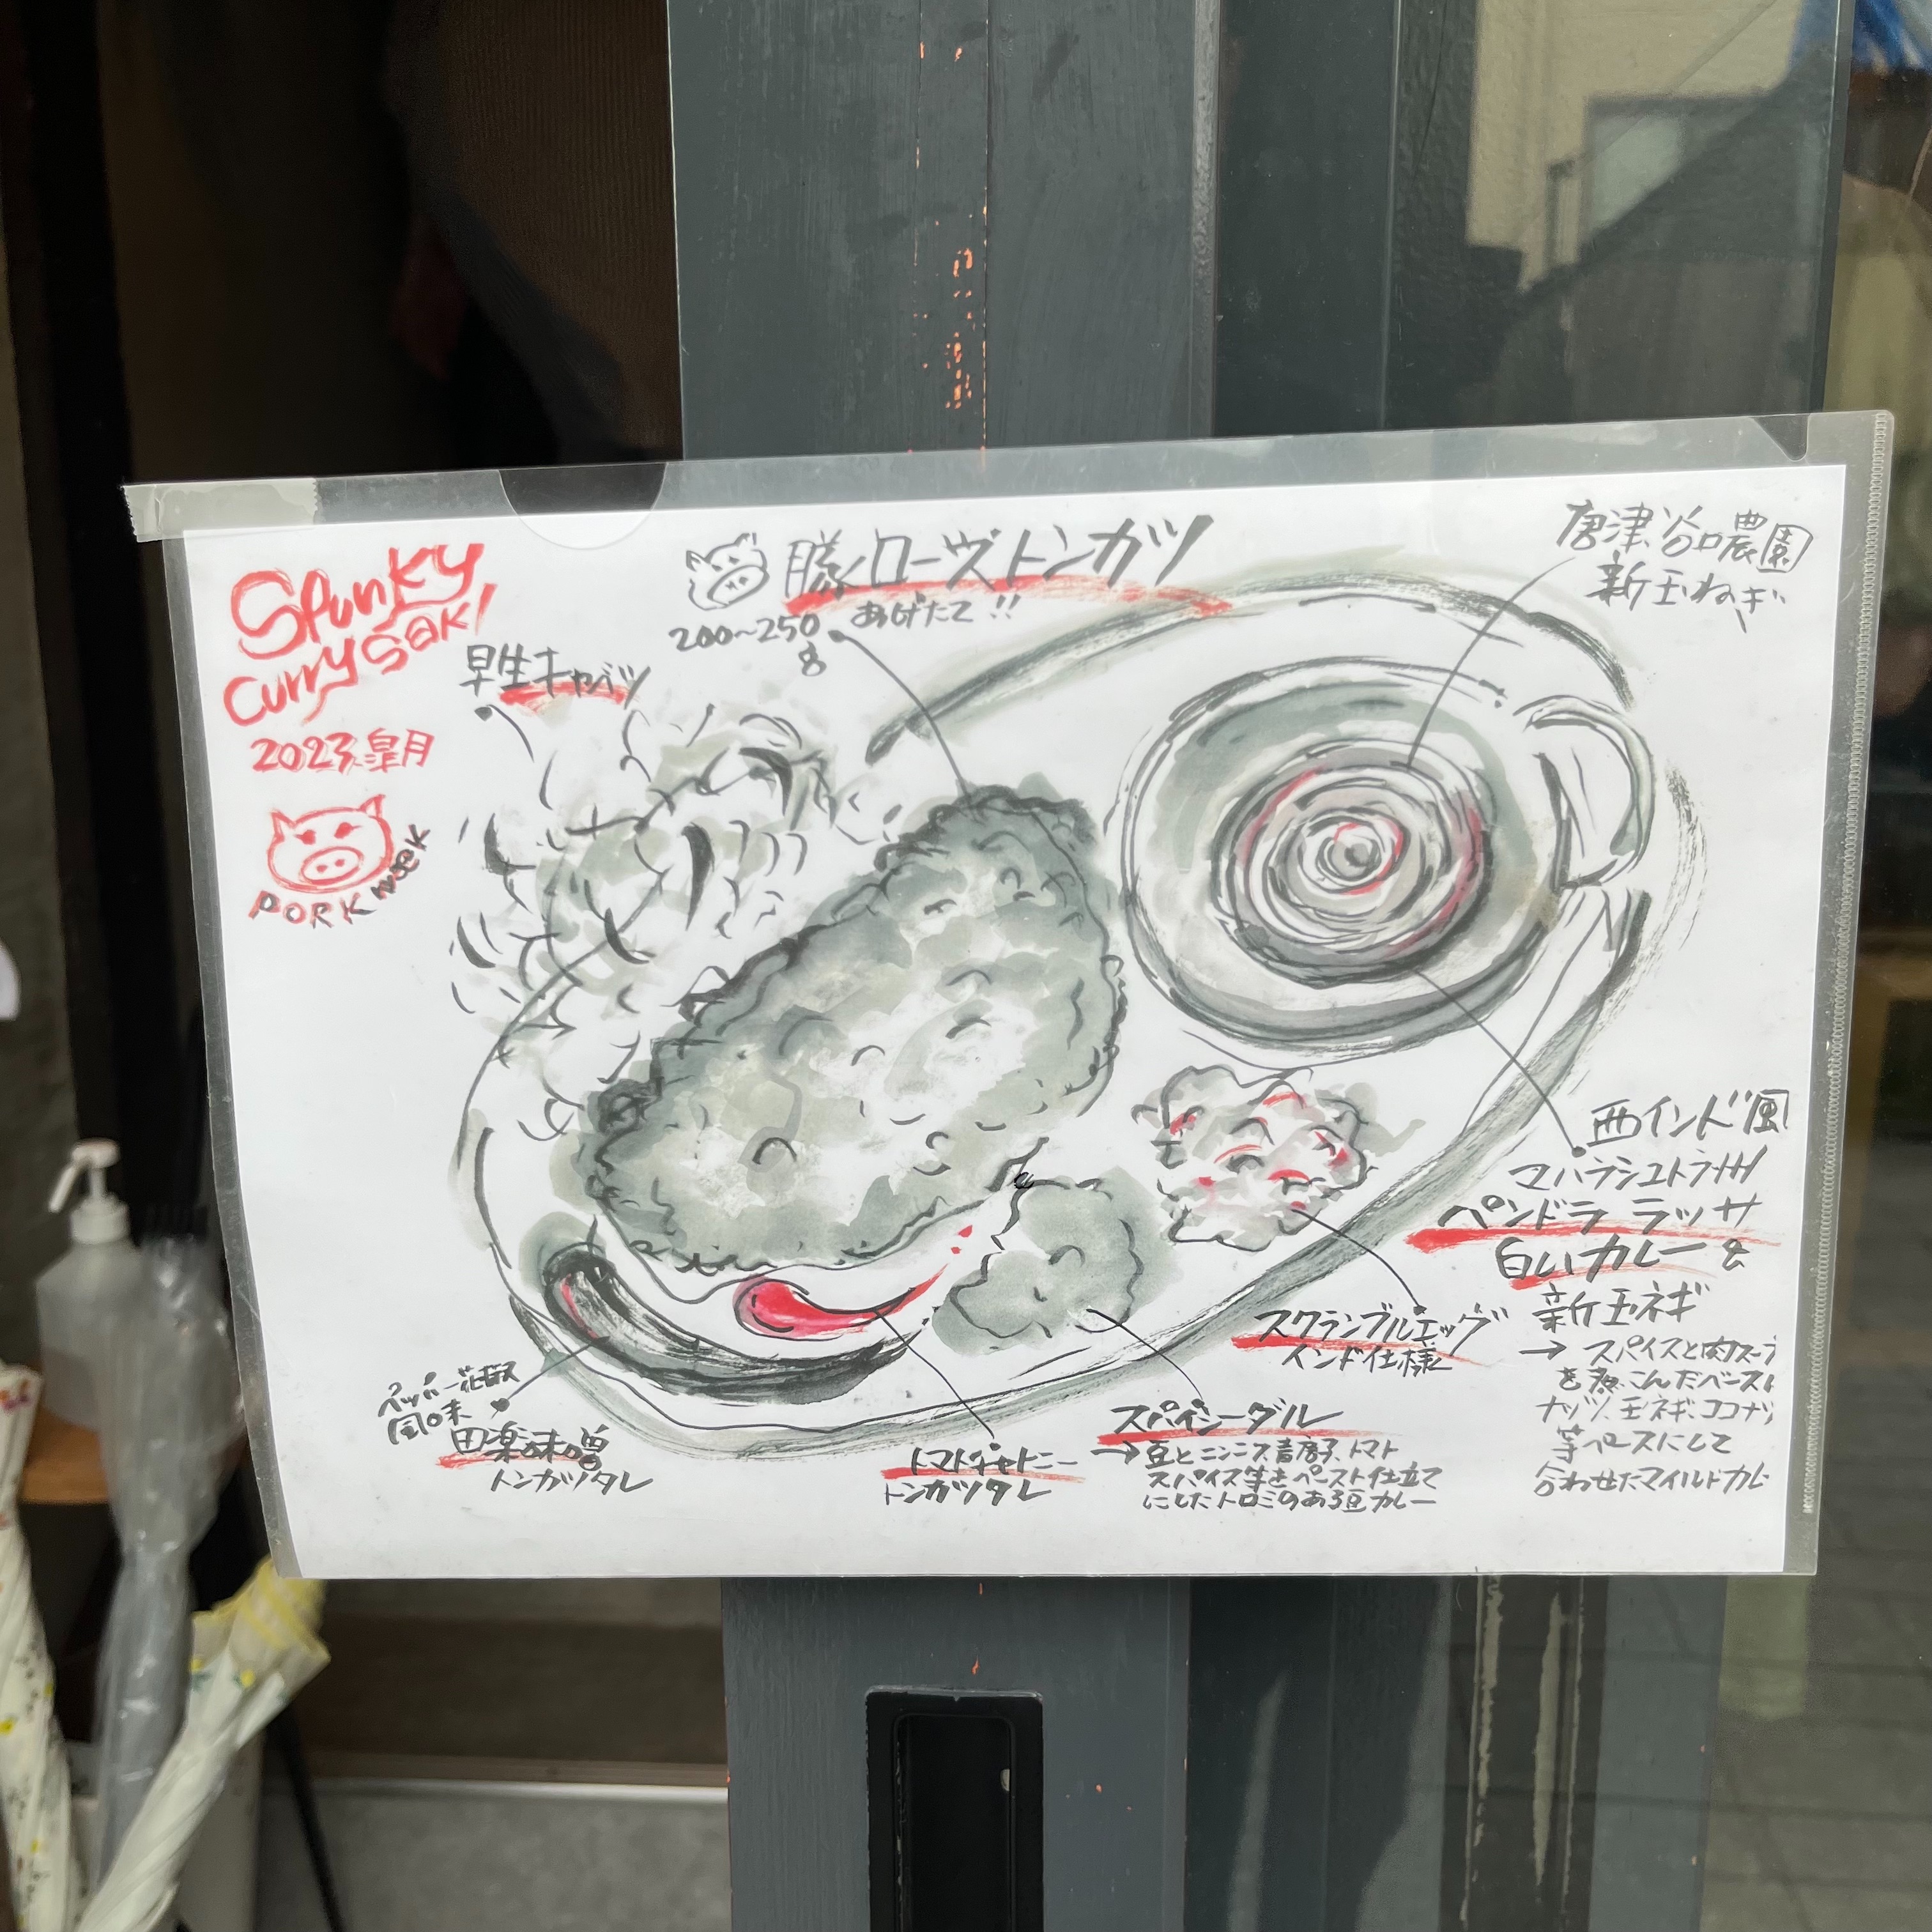 Spunky
curry saki
2023 皐月
PORK week
豚ロースストンカツ
200〜250g
あげたて!!
早生キャベツ
唐津.谷口農園
新玉ねぎ
西インド風
マハラシュトラ州
ペンドラ ラッサ
白いカレー &
新玉ネギ
→ スパイスと肉スープ
を煮こんだベースに
ナッツ、玉ネギ、ココナッツ
等ペースにして
合わせたマイルドカレー
スクランブルエッグ
インド仕様
スパイシーダル
→豆とニンニク、トマト
スパイス等をペースト仕立て
にしたトロミのある豆カレー
トマトチャトニー
トンカツタレ
風味
田楽味噌
トンカツタレ